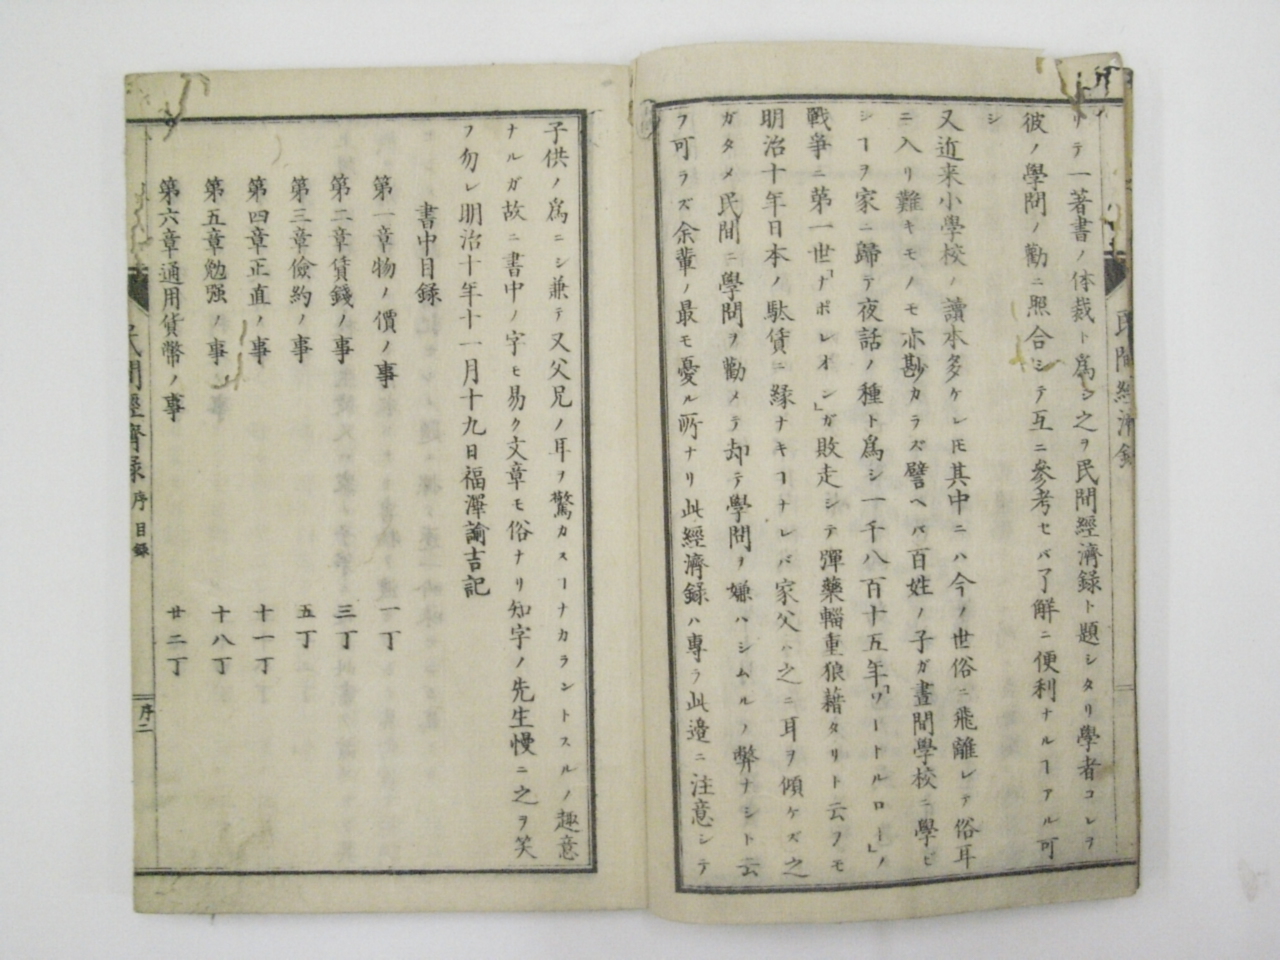 リテ一著書ノ体裁ト為シ之ヲ民間經濟録ト題シタリ學者コレヲ
彼ノ學問ノ勸ニ照合シテ互ニ參考セバ了解ニ便利ナルヿアル可
シ
又近来小學校ノ讀本多ケレ𪜈其中ニハ今ノ世俗ニ飛離レテ俗耳
ニ入リ難キモノモ亦尠カラズ譬ヘバ百姓ノ子ガ晝間學校ニ學ビ
シヿヲ家ニ歸テ夜話ノ種ト為シ一千八百十五年「ワートルロー」ノ
戰爭ニ第一世「ナポレオン」ガ敗走シテ彈藥輜重狼藉タリト云フモ
明治十年日本ノ駄賃ニ縁ナキヿナレバ家父ハ之ニ耳ヲ傾ケズ之
ガタメ民間ニ學問ヲ勸メテ却テ學問ヲ嫌ハシムルノ弊ナシト云
フ可ラズ余輩ノ最モ憂ル所ナリ此經濟録ハ專ラ此邉ニ注意シテ
子供ノ爲ニシ兼テ又父兄ノ耳ヲ驚カスヿナカラントスルノ趣意
ナルガ故ニ書中ノ字モ易ク文章モ俗ナリ知字ノ先生慢ニ之ヲ笑
フ勿レ明治十年十一月十九日福澤諭吉記
書中目録
第一章物ノ價ノ事 一丁
第二章賃錢ノ事 三丁
第三章儉約ノ事 五丁
第四章正直ノ事 十一丁
第五章勉强ノ事 十八丁
第六章通用貨幣ノ事 廿二丁
民間經濟録 序 目録 序二